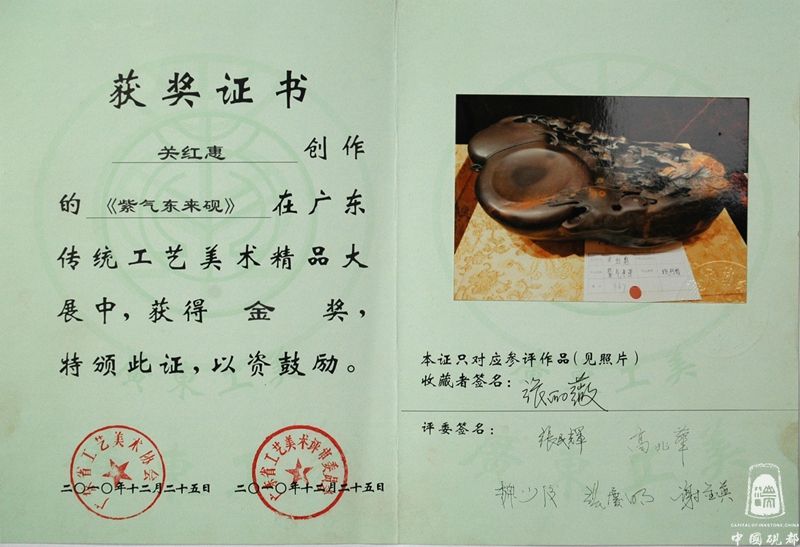 获奖证书
关红惠 创作
的 《紫气东来砚》 在广东
传统工艺美术精品大
展中，获得 金 奖，
特颁此证，以资鼓励。
广东省工艺美术协会
二〇一〇年十二月二十五日
广东省工艺美术评审委员会
二〇一〇年十二月二十五日
本证只对应参评作品(见照片)
收藏者签名：
评委签名：
张民辉 高兆华
CAPITAL OF INKSTONE, CHINA
中國硯都